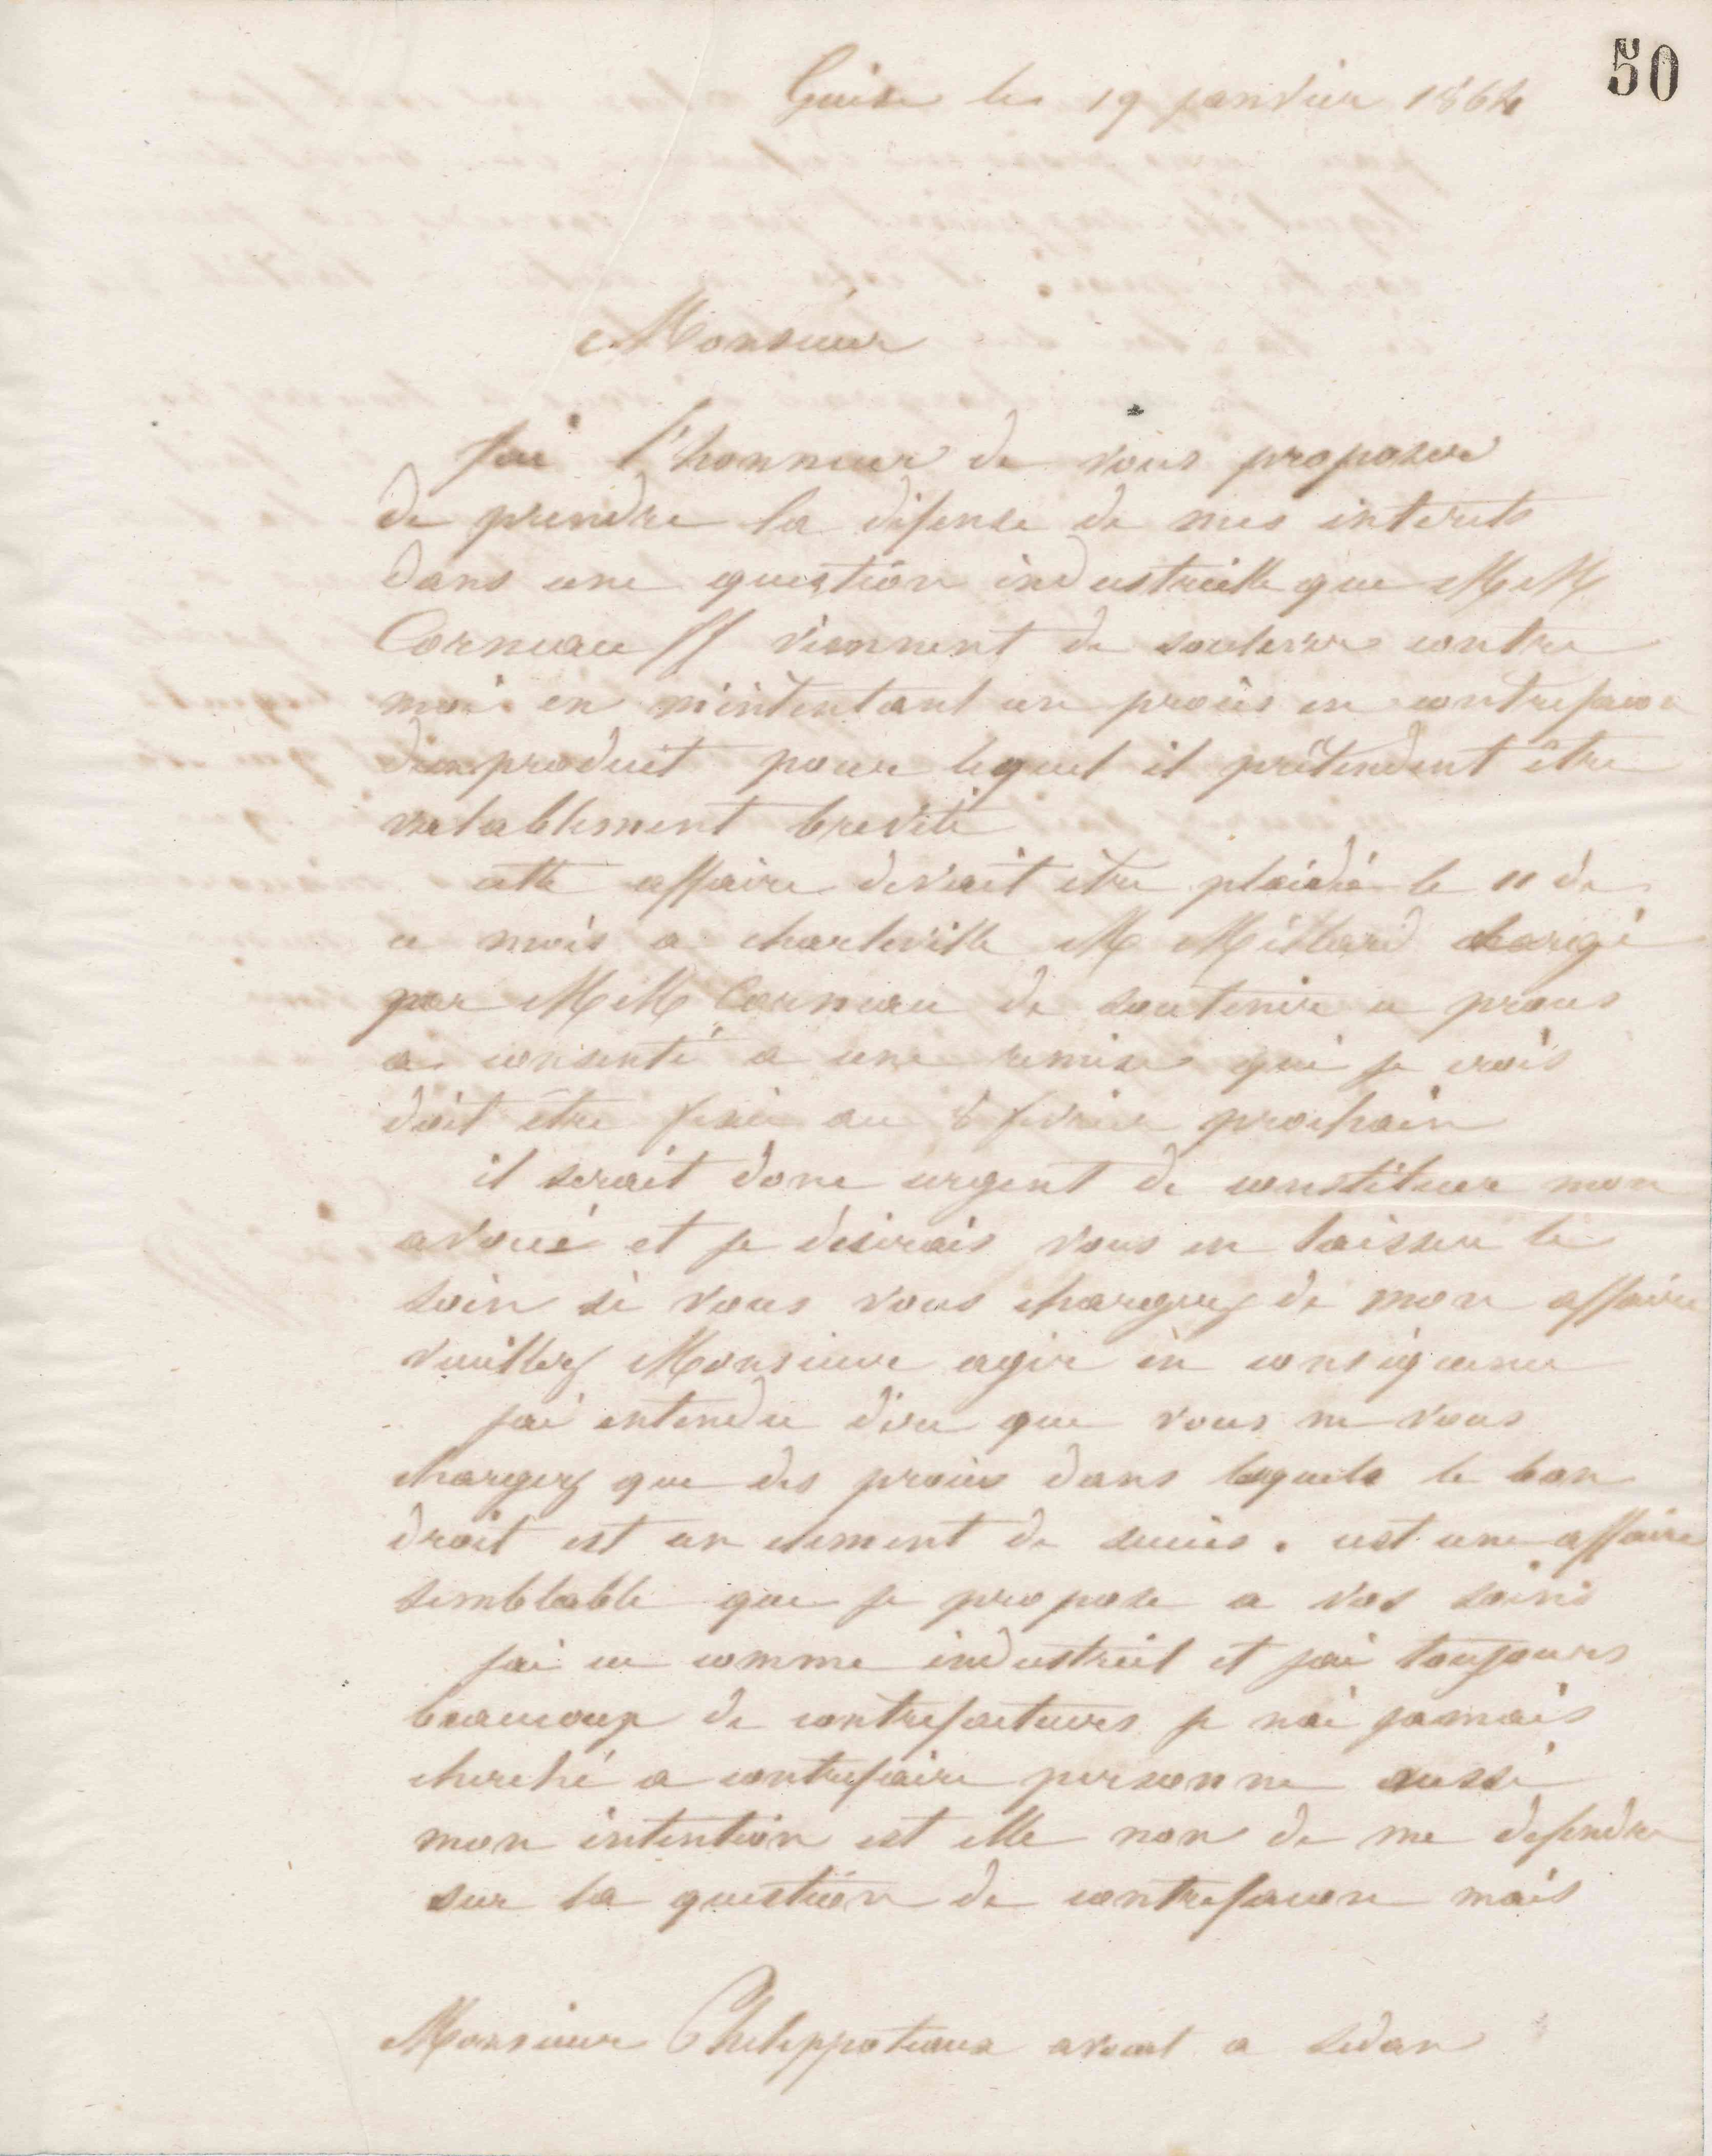 50
Guise le 19 janvier 1864
Monsieur
J'ai l'honneur de vous proposer
de prendre la défense de mes interets
dans une question industrielle que MM
Corneau ff viennent de soulever contre
moi en m'intentant un procès en contrefacon
d'un produit pour lequel il prétendent être
valablement breveté
cette affaire devait être plaidée le 11 de
ce mois a charleville M Millard chargé
par MM Corneau de soutenir ce proces
a consenti a une remise qui je crois
doit être fixée au 8 fevrier prochain
il serait donc urgent de constituer mon
avoué et je désirais vous en laisser le
soin si vous vous chargez de mon affaire
veuillez Monsieur agir en conséquence
j'ai entendu dire que vous ne vous
chargez que des procès dans lesquels le bon
droit est un element de succès. cest une affaire
semblable que je propose a vos soins
j'ai eu comme industriel et j'ai toujours
beaucoup de contrefacteurs je n'ai jamais
cherché a contrefaire personne aussi
mon intention est elle non de me defendre
sur la question de contrefacon mais
Monsieur Philippoteaux avocat a sedan